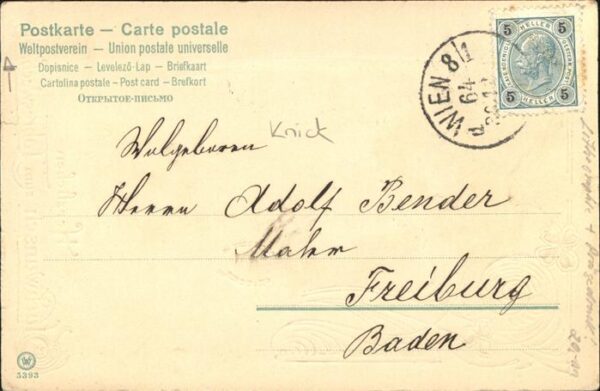 Postkarte — Carte postale
Weltpostverein — Union postale universelle
Dopisnice — Levelező-Lap — Briefkaart
Cartolina postale - Post card - Brefkort
ОТКРЫТОЕ-ПИСЬМО
5 HELLER 5
5 HELLER 5
WIEN 8/1
64
Knick
Wolgeboren
Herrn Adolf Bender
Maler
Freiburg
Baden
5393